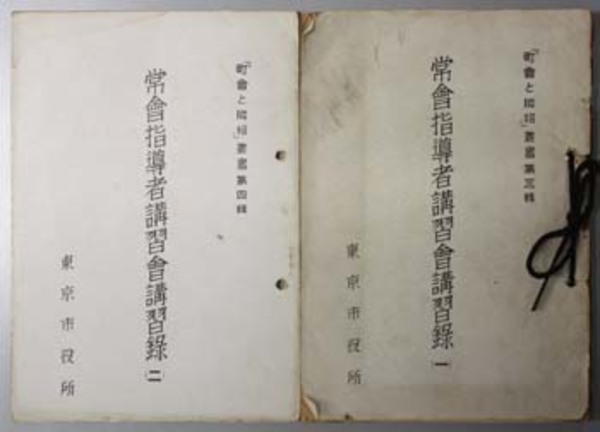 「町會と隣組」叢書第三輯
常會指導者講習會講習錄(一)
東京市役所
「町會と隣組」叢書第四輯
常會指導者講習會講習錄(二)
東京市役所